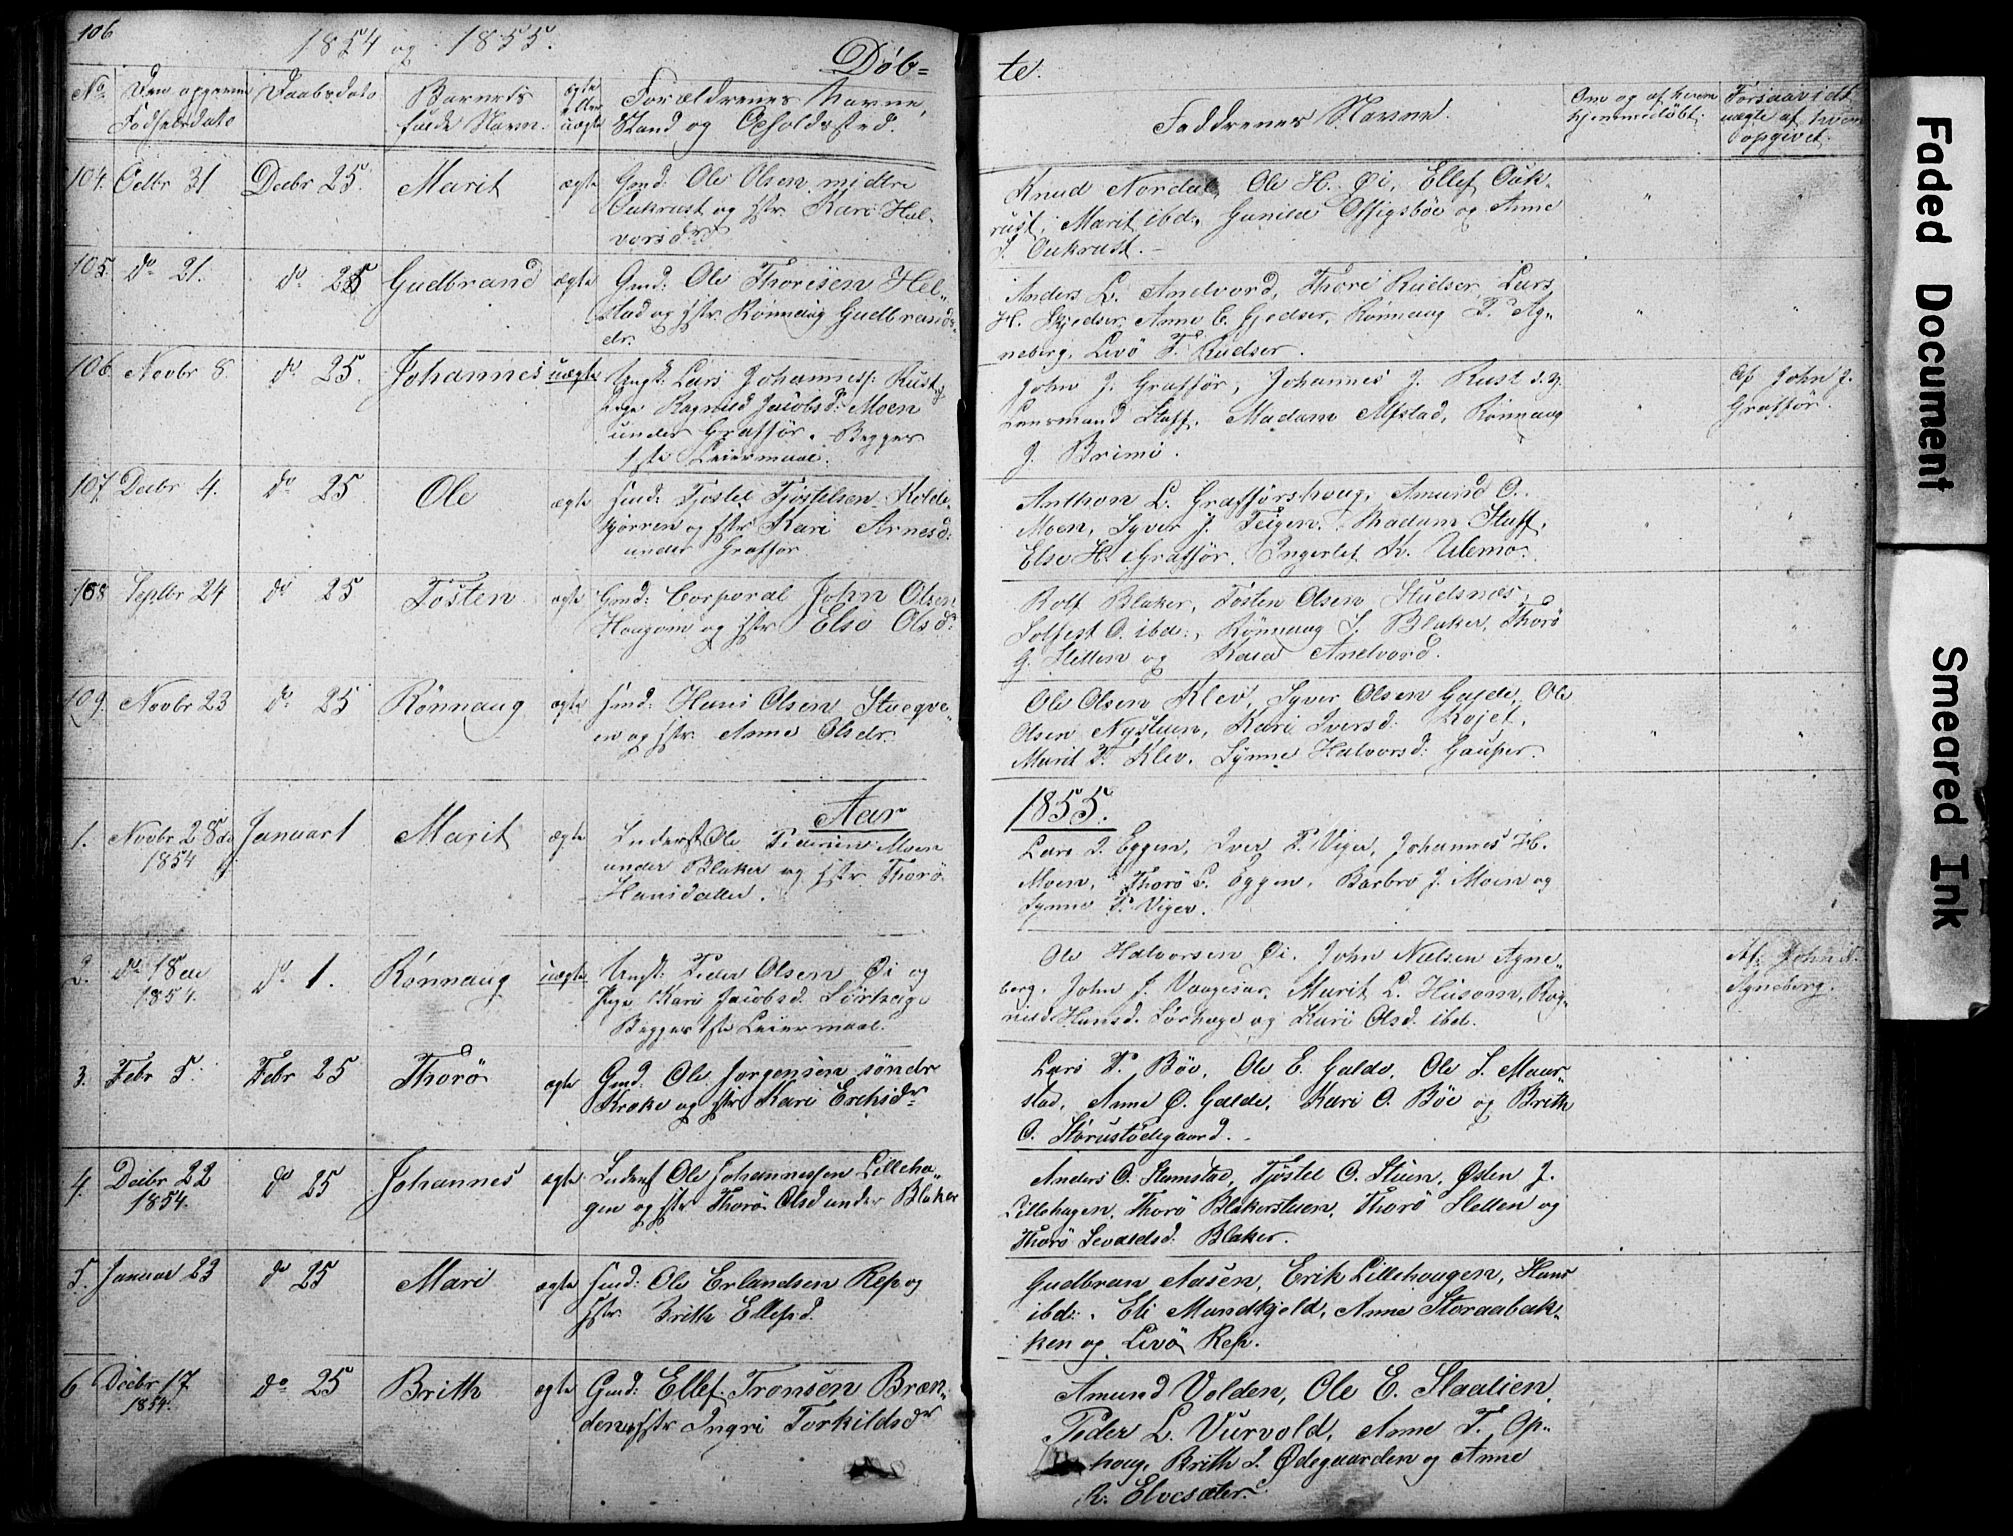 106
1854 og 1855.
Døb-
te.
No
Den opgivne
Fødselsdato
Daabsdato
Barnets
fulde Navn.
ægte
eller
uægte
Forældrenes Navne,
Stand og Opholdssted.
Faddrenes Navne.
Om og af hvem
hjemmedøbt.
Forsaavidt
uægte af hvem
opgivet.
104. Octbr 31 Decbr 25. Marit ægte Gmd: Ole Olsen midtre
Oukrust og Hstr. Kari Hal-
vorsdr
Knud Nordal, Ole H. Øi, Ellef Ouk-
rust, Marit ibd:, Gunild Offigsbøe og Anne
Oukrust.
105. do 21. do 25 Gudbrand ægte Gmd: Ole Thoresen Hel-
stad og Hstr. Rønnaug Gudbrands-
dr.
Anders L. Andvord, Thore Rudser, Lars
H. Gjedser, Anne C. Gjedser, Rønnaug T. Ag-
neberg, Livö T. Rudser.
106 Novbr 8 do 25. Johannes uægte Ungk: Lars Johanness: Rust og
Pige Ragnild Jacobsd: Moen
under Graffør. Begges
1ste Leiermaal.
John J. Graffør, Johannes J. Rust s. g.
Lensmand Staff, Madam Alfstad, Rönnaug
J. Brimi.
Af John J.
Graffør.
107 Decbr 4. do 25 Ole ægte Hmd: Tjøstel Tjøstelsen Kolde-
tjørren og Hstr. Kari Arnesd:
under Graffør
Anthon L. Grafførshoug, Amund O.
Moen, Syver J. Teigen, Madam Staff,
Else H. Graffør, Ingerlet K. Ulemo.
108 Septbr 24 do 25 Tosten ægte Gmd: Corporal John Olsen
Hougom og Hstr Else Olsdr
Rolf Blaker, Tosten Olsen Studsnæs,
Solfest O. ibd:, Rønnaug S. Blaker, Thorö
G. Sletten og Kari Andvord.
109. Novbr 23 do 25 Rønnaug ægte Hmd: Hans Olsen Stueqve-
en og Hstr. Anne Olsdr.
Ole Olsen Klev, Syver Olsen Galde, Ole
Olsen Nystuen, Kari Iversd: Kojet,
Marit T. Klev, Synne Halvorsd: Gaupar.
Aar
1855.
1. Novbr 28de
1854
Januar 1 Marit ægte Inderst Ole Pedersen Moen
under Blaker og Hstr. Thorö
Hansdatter.
Lars I. Eggen, Iver T. Viger, Johannes H.
Moen, Thorö L. Eggen, Barbro J. Moen og
Synne T. Viger.
2. do 18de
1854.
do 1. Rønnaug uægte Ungk: Peder Olsen Øi og
Pige Kari Jacobsd. Sörhage
Begges 1ste Leiermaal.
Ole Halvorsen Øi, John Nielsen Agne-
berg, John J. Vaagesar, Marit L. Husom, Rag-
nild Hansd. Sörhage og Kari Olsd. ibd.
Af: John N.
Agneberg.
3. Febr 5. Febr 25 Thorö ægte Gmd: Ole Jorgensen söndre
Kroke og Hstr Kari Erchsdr
Lars T. Böe, Ole E. Galde, Ole S. Maur-
stad, Anne O. Galde, Kari O. Böe og Brith
O. Storustødegaard.
4. Decbr 22
1854.
do 25 Johannes ægte Inderst Ole Johannessen Lilleha-
gen og Hstr Thorö Olsd under Blaker
Anders O. Slemstad, Tjøstel O. Stuen, Østen J.
Lillehagen, Thorö Blakerstuen, Thorö Sletten og
Thorö Sevaldsd. Blaker.
5. Januar 23 do 25 Mari ægte Hmd: Ole Erlandsen Rep og
Hstr. Brith Ellefsd.
Gudbran Aasen, Erik Lillehaugen, Hans
ibd:, Eli Mundhjeld, Anne Storaabak-
ken og Livö Rep.
6 Decbr 17
1854.
do 25 Brith ægte Gmd: Ellef Tronsen Bræn-
den og Hstr Ingri Torkildsdr
Amund Volden, Ole E. Slaalien,
Peder L. Vurvold, Anne T. Op-
houg, Brith I. Ødegaarden og Anne
R. Elvesæter.
Faded Document
Smeared Ink